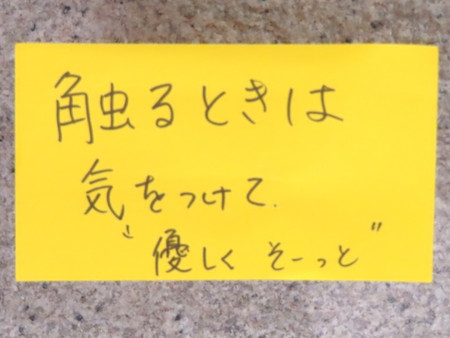 触るときは
気をつけて.
"優しく そーっと"